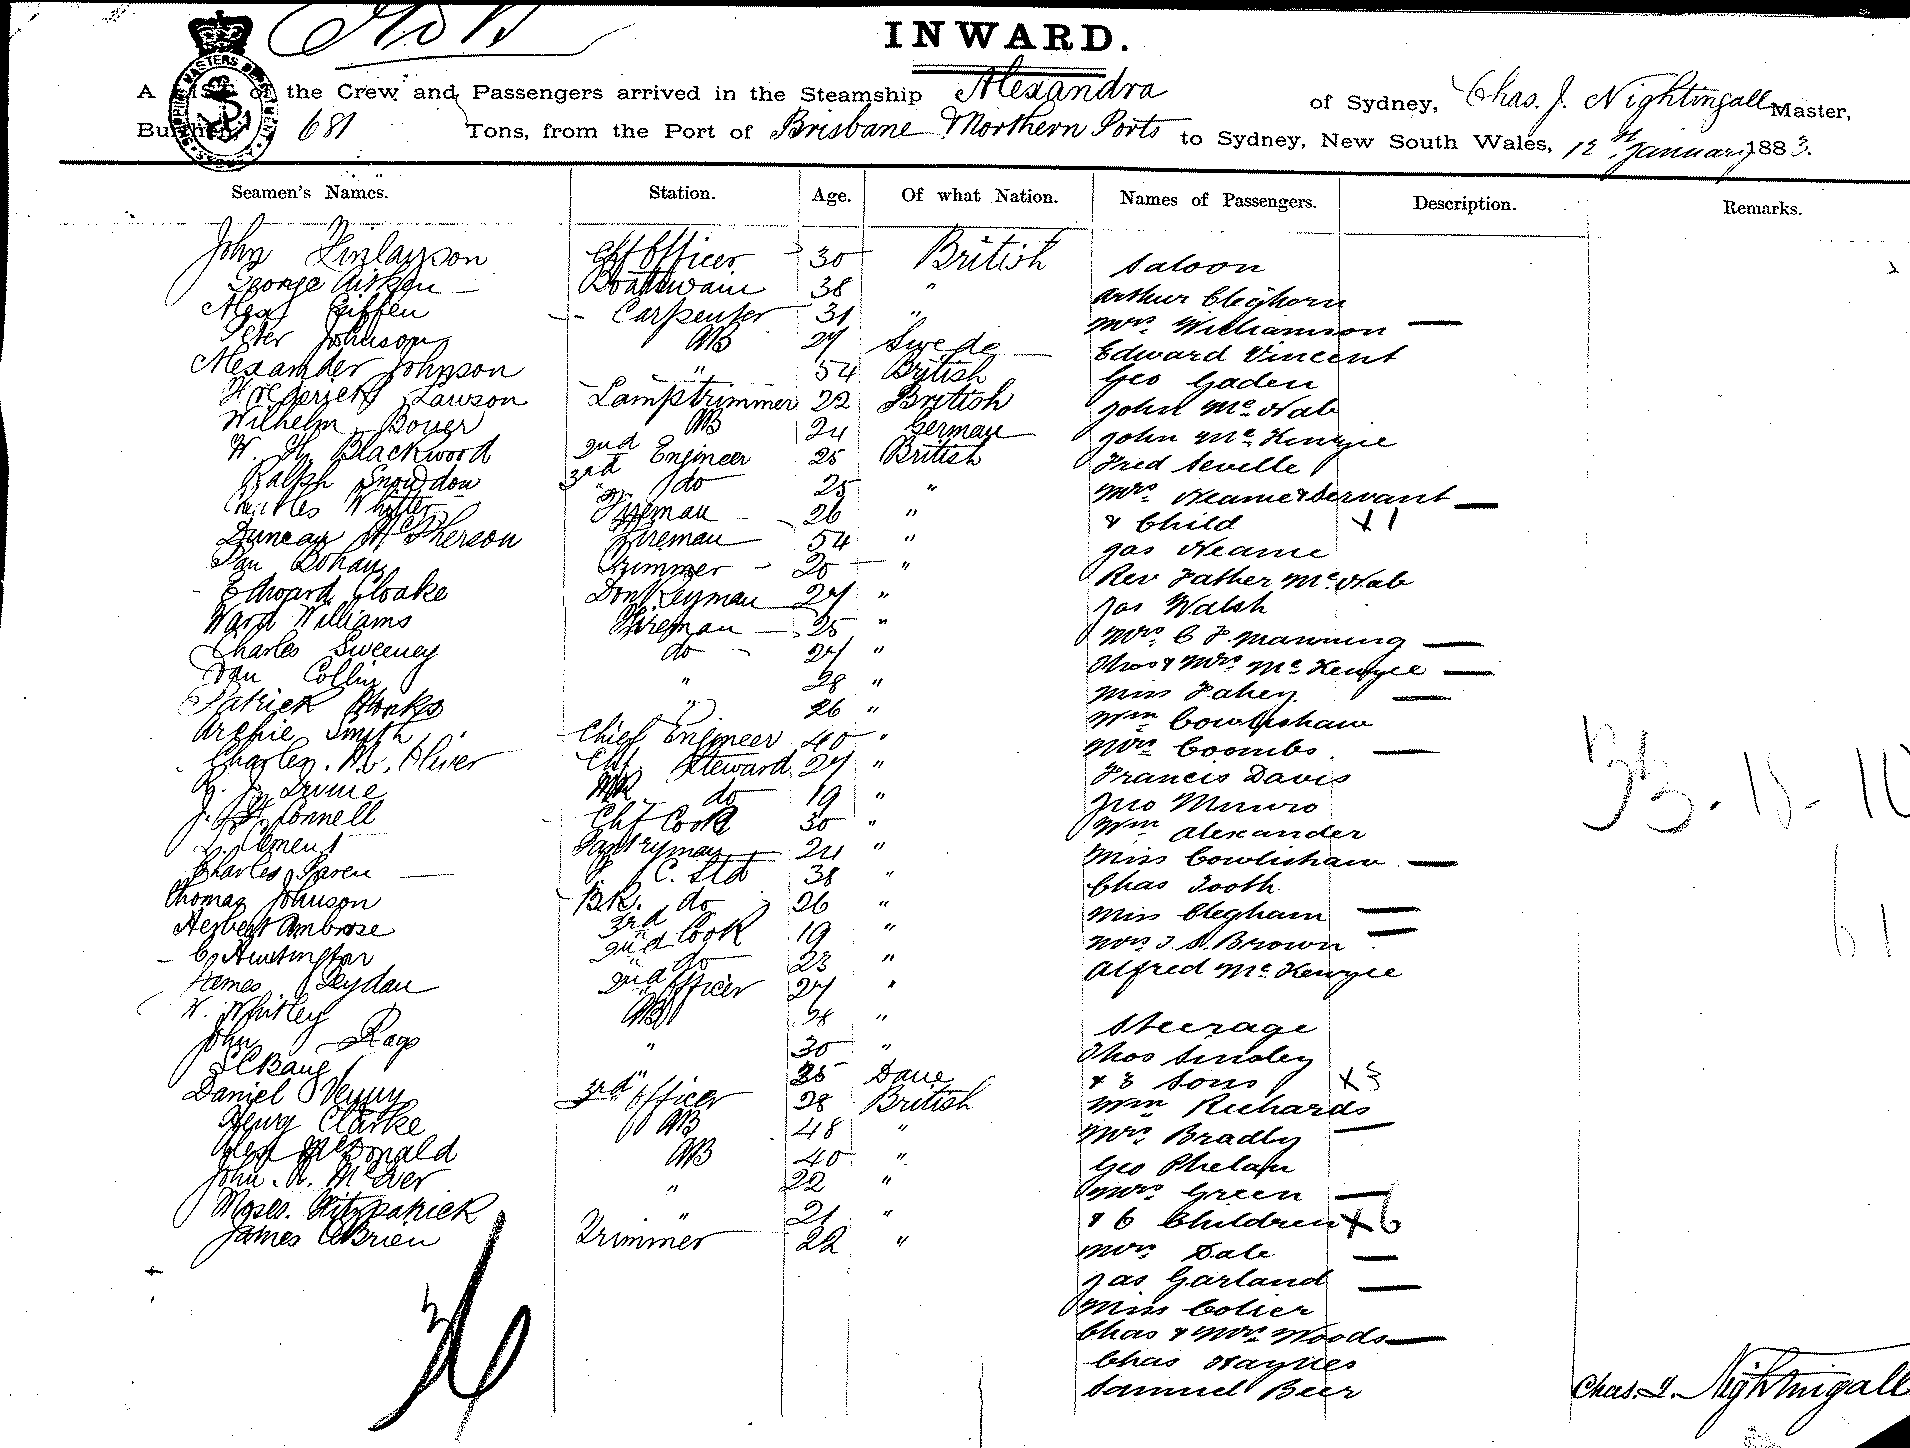 INWARD.
A List of the Crew and Passengers arrived in the Steamship Alexandra of Sydney, Chas. J. Nightingall Master,
Burthen 681 Tons, from the Port of Brisbane Northern Ports to Sydney, New South Wales, 12th January 1883.
Seamen's Names. Station. Age. Of what Nation. Names of Passengers. Description. Remarks.
John Finlayson Chf Officer 30 British Saloon
George Aitken Boatswain 38 " Arthur Cleghorn
Alex Giffen Carpenter 31 " Mrs. Williamson —
Peter Johnson AB 27 Swede Edward Vincent
Alexander Johnson " 54 British Geo Gaden
Frederick Lawson Lamptrimmer 22 British John McNab
Wilhelm Bower AB 24 German John McKenzie
W. H. Blackwood 2nd Engineer 25 British Fred Seville
Ralph Snowdon 3rd do 25 " Mrs. Neame & Servant —
Charles Whitter Fireman 26 " & Child X1
Duncan McPherson Fireman 54 " Jas Neame
Dan Bohan Trimmer 20 " Rev Father McNab
Edward Cloake Donkeyman 27 " Jas Walsh
Ward Williams Fireman 25 " Mrs. C F. Manning —
Charles Sweeney do 27 " Thos & Mrs. McKenzie —
Dan Collin " 28 " Miss Fahey —
Patrick Monks " 26 " Wm Cowlishaw
Archie Smith Chief Engineer 40 " Mrs. Coombs —
Charles. W. Oliver Chf Steward 27 " Francis Davis
Irvine do 19 " Jno Munro
J. Connell Chf Cook 30 " Wm Alexander
Clement Pantryman 24 " Miss Cowlishaw —
Charles Paren C. Std 38 " Chas Tooth
Thomas Johnson BK. do 26 " Miss Clegham —
Herbert Ambrose 3rd Cook 19 " Mrs. J. A. Brown —
C. Huntington 2nd do 23 " Alfred McKenzie
James Leydan 2nd Officer 27 "
W. Whitley AB 38 " Steerage
John Rags " 30 " Thos Tinsley
Bang " 35 Dane & 3 Sons X3
Daniel Venny 3rd Officer 28 British Wm Richards
Henry Clarke AB 48 " Mrs. Bradly —
Alex McDonald AB 40 " Geo Phelan
John. A. McIver " 22 " Mrs. Green —
Moses. Fitzpatrick " 21 " & 6 Children X6
James O'Brien Trimmer 22 " Mrs. Dale —
Jas Garland —
Miss Colier
Chas & Mrs. Woods —
Chas Haynes
Samuel Beer
36
Chas. J. Nightingall